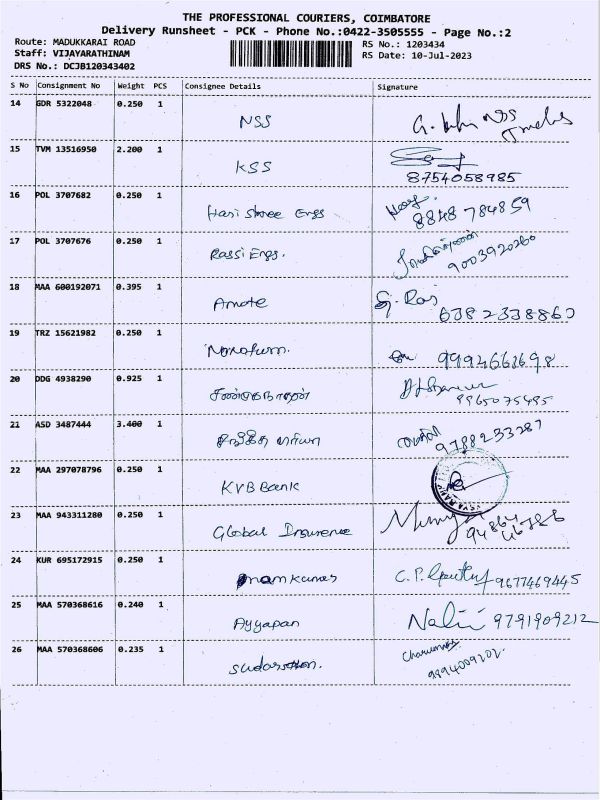 THE PROFESSIONAL COURIERS, COIMBATORE
Delivery Runsheet - PCK - Phone No.:0422-3505555 - Page No.:2
Route: MADUKKARAI ROAD RS No.: 1203434
Staff: VIJAYARATHINAM RS Date: 10-Jul-2023
DRS No.: DCJB120343402
S No Consignment No Weight PCS Consignee Details Signature
14 GDR 5322048 0.250 1
NSS
15 TVM 13516950 2.200 1
KSS 8754058985
16 POL 3707682 0.250 1
Hari Shree Engs 8848784859
17 POL 3707676 0.250 1
Rassi Engs. 9003920260
18 MAA 600192071 0.395 1
Amote G. Raj
6382338860
19 TRZ 15621982 0.250 1
9994661698
20 DDG 4938290 0.925 1
9965075495
21 ASD 3487444 3.400 1
9788233287
22 MAA 297078796 0.250 1
KVB Bank
23 MAA 943311280 0.250 1
Global Insurence
24 KUR 695172915 0.250 1
C.P. 9677469445
25 MAA 570368616 0.240 1
Ayyapan Nalii 9791909212
26 MAA 570368606 0.235 1
9894009202.